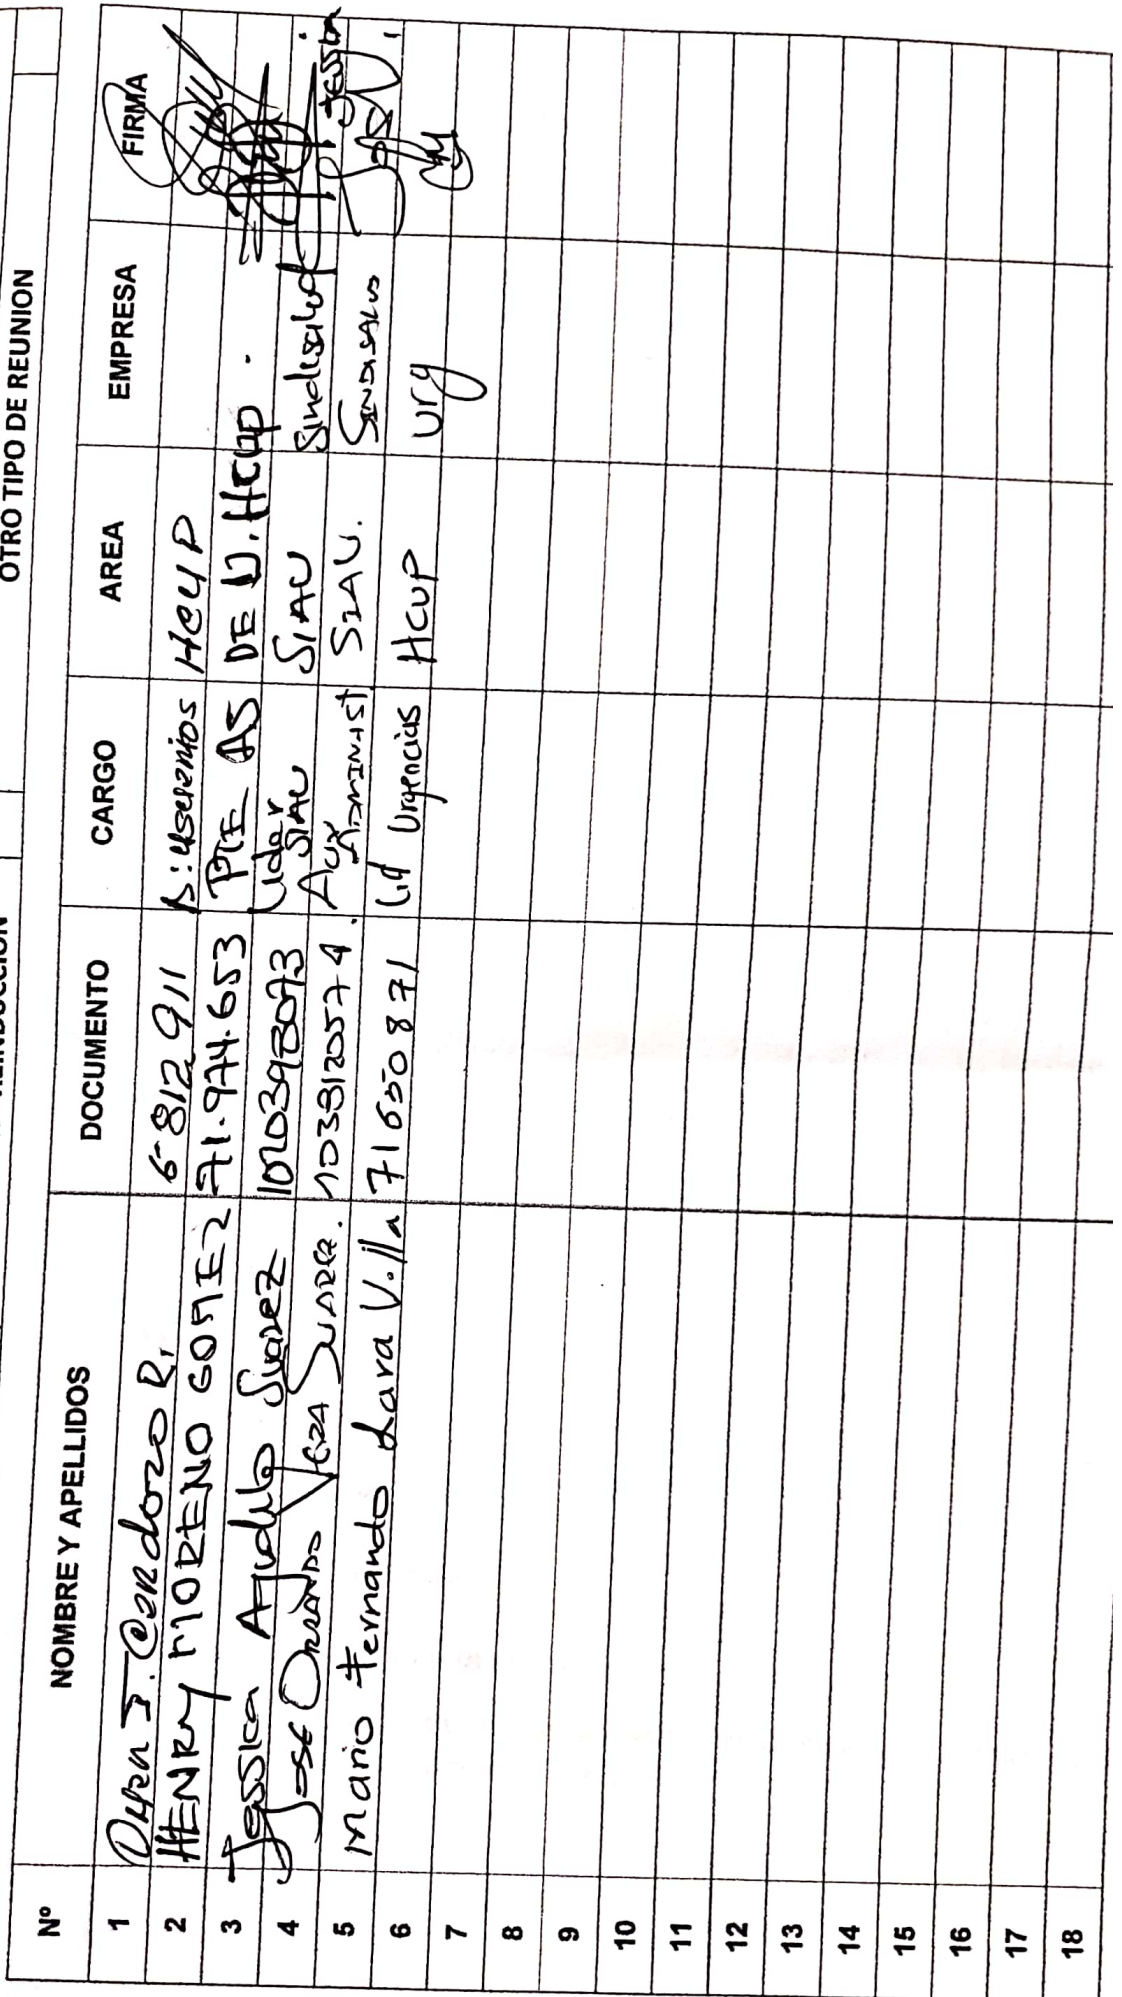 OTRO TIPO DE REUNION
Nº NOMBRE Y APELLIDOS DOCUMENTO CARGO AREA EMPRESA FIRMA
1 J. Cardozo R. 6-812911 A: usuarios HCUP
2 HENRY MORENO GOMEZ 71.974.653 PTE AS DE U. HCUP.
3 Jessica Agudelo Suarez Lider SIAU SIAU Sindesalud
4 JOSE ORLANDO VERA SUAREZ. 1038120574. AUX ADMINIST SIAU. SINDISALUD
5 Mario Fernando Lara Villa 71650871 Lid Urgencias HCUP Urg
6
7
8
9
10
11
12
13
14
15
16
17
18